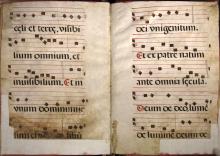 celi et terre, visibi
lium omnium, et
invisibilium. Et in
unum dominum
lium et in
dei unigenitum.
Et ex patre natum
ante omnia secula.
Deum de deo lumē
de lumine deum de